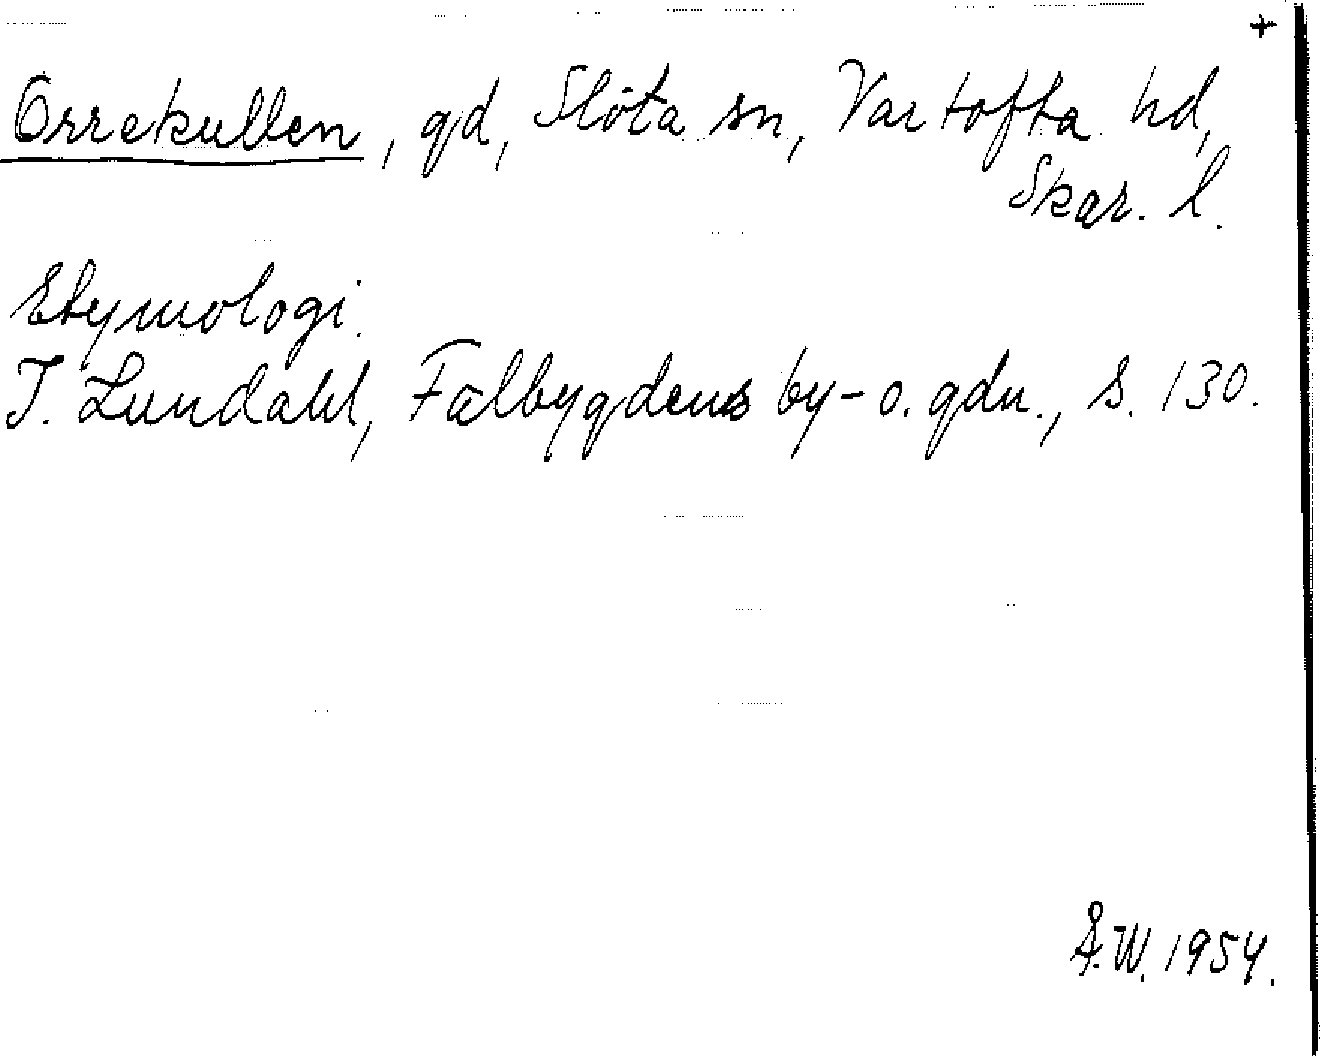 +
Orrekullen, gd, Slöta sn, Vartofta hd,
Skar. l.
Etymologi.
I. Lundahl, Falbygdens by- o. gdn., s. 130.
Å.W. 1954.